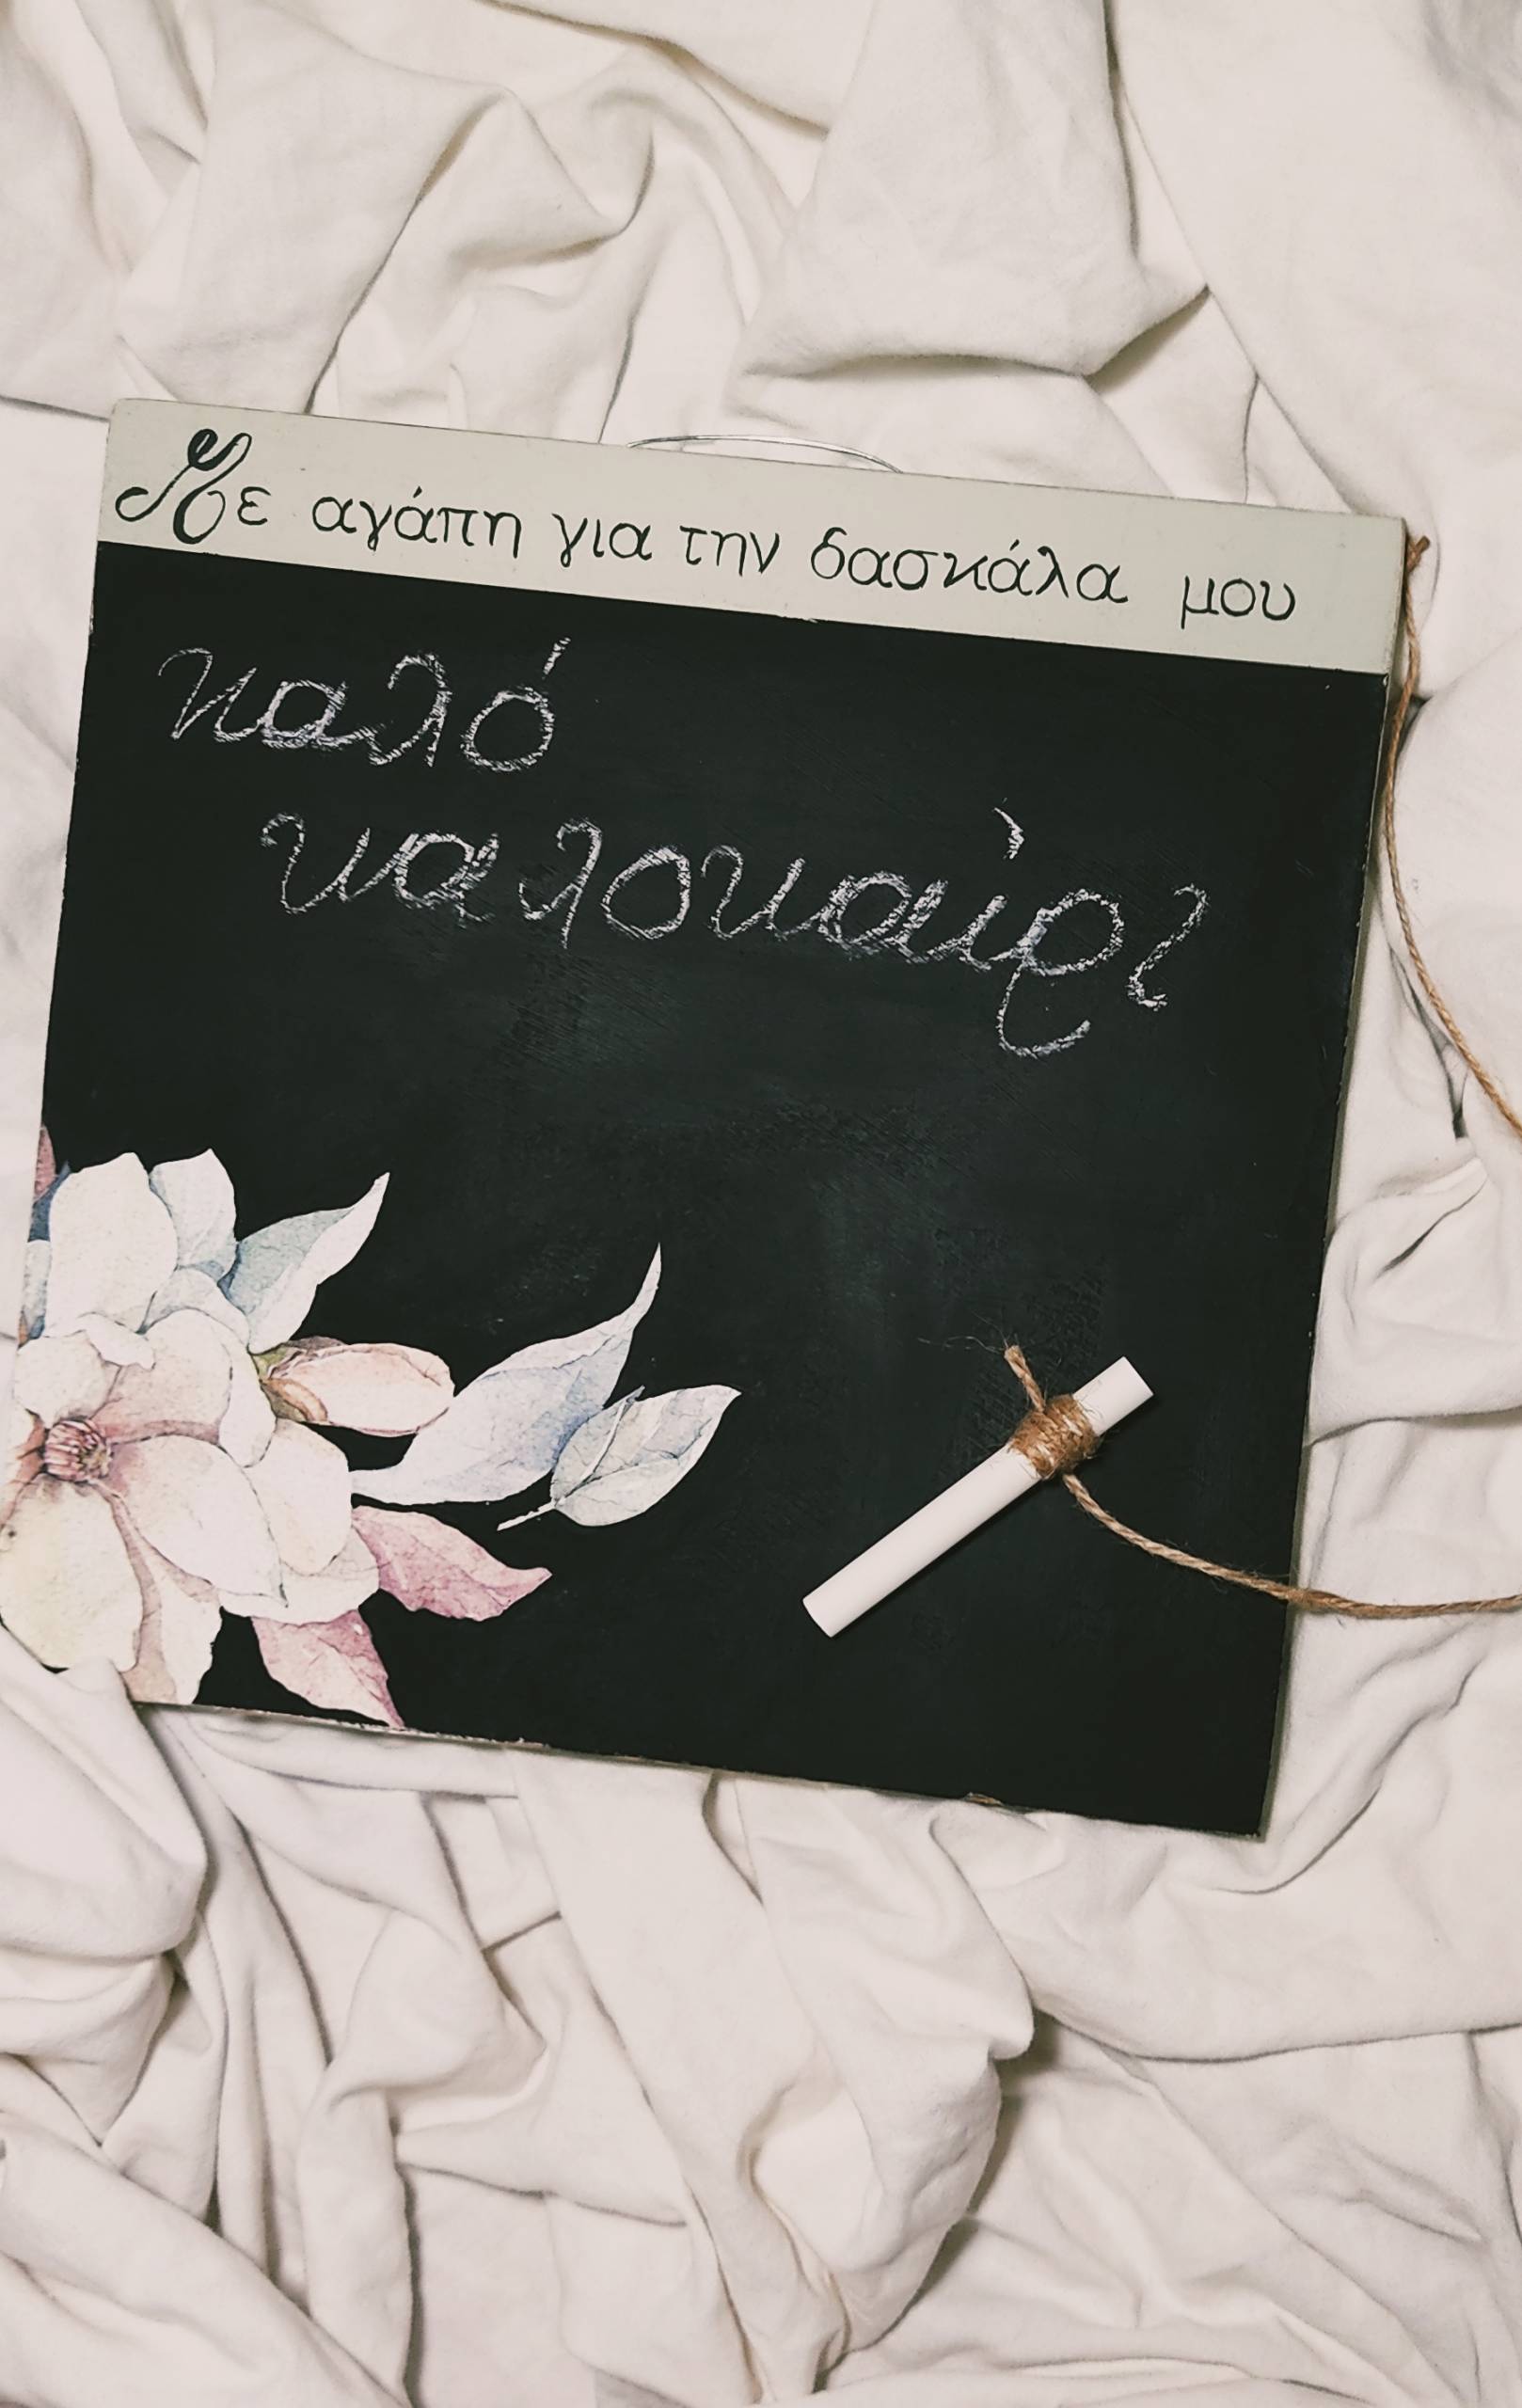 Με αγάπη για την δασκάλα μου
καλό
καλοκαίρι